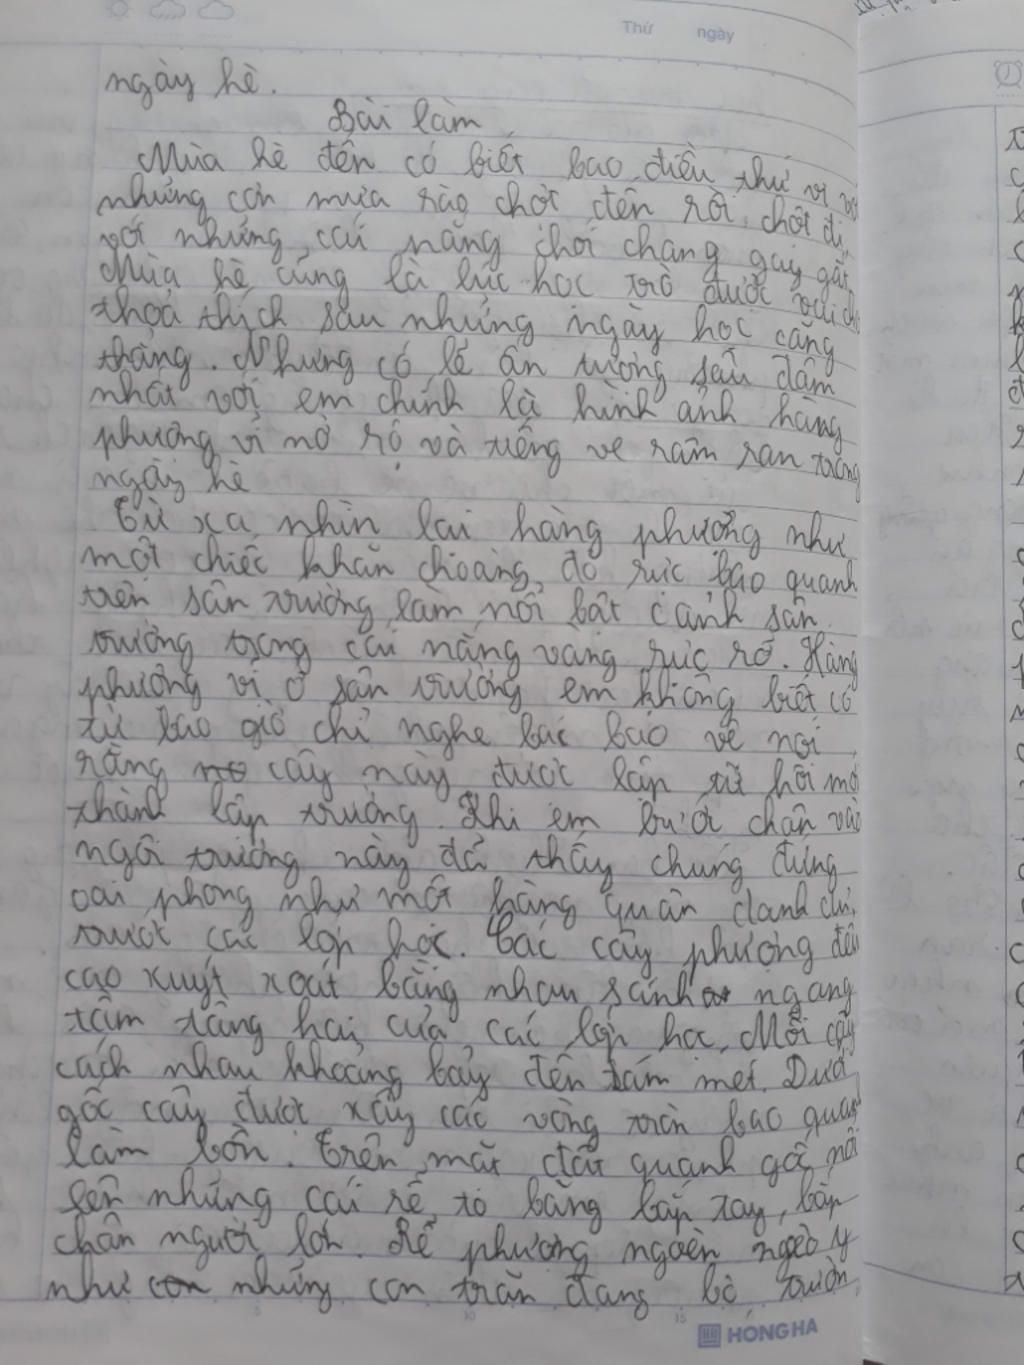 Thứ ngày
ngày hè.
Bài làm
Mùa hè đến có biết bao điều thú vị với
những cơn mưa rào chợt đến rồi chợt đi,
với những cái nắng chói chang gay gắt.
Mùa hè cũng là lúc học trò được vui chơi
thoả thích sau những ngày học căng
thẳng. Nhưng có lẽ ấn tượng sâu đậm
nhất với em chính là hình ảnh hàng
phượng vĩ nở rộ và tiếng ve râm ran trong
ngày hè
Từ xa nhìn lại hàng phượng như
một chiếc khăn choàng đỏ rực bao quanh
trên sân trường làm nổi bật cảnh sân
trường trong cái nắng vàng rực rỡ. Hàng
phượng vĩ ở sân trường em không biết có
từ bao giờ chỉ nghe bác bảo vệ nói
rằng cây này được lập từ hồi mới
thành lập trường. Khi em bước chân vào
ngôi trường này đã thấy chúng đứng
oai phong như một hàng quân danh dự
trước các lớp học. Các cây phượng đều
cao xuýt xoát bằng nhau sánh ngang
tầm tầng hai của các lớp học. Mỗi cây
cách nhau khoảng bảy đến tám mét. Dưới
gốc cây được xây các vòng tròn bao quanh
làm bồn. Trên mặt đất quanh gốc nổi
lên những cái rễ to bằng bắp tay, bắp
chân người lớn. Rễ phượng ngoèn ngoèo y
như những con trăn đang bò trườn
HONG HA